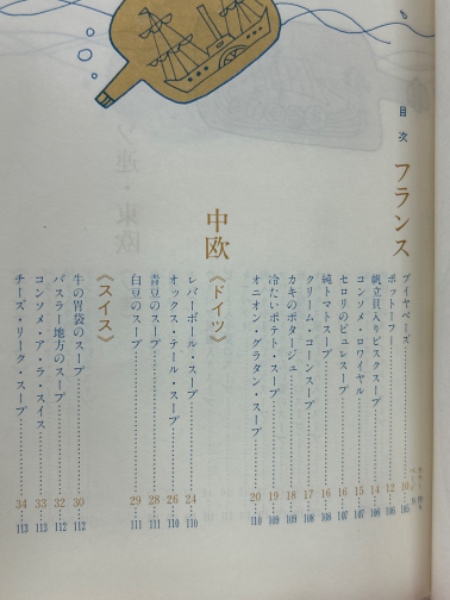 目次
フランス
ブイヤベーズ……10……105
ポットーフー……12……106
帆立貝入りビスクスープ……14……106
コンソメ・ロワイヤル……15……107
セロリのピュレスープ……16……107
純トマトスープ……16……108
クリーム・コーンスープ……17……108
カキのポタージュ……18……109
冷たいポテト・スープ……19……109
オニオン・グラタン・スープ……20……110
中欧
《ドイツ》
レバーボール・スープ……24……110
オックス・テール・スープ……26……110
青豆のスープ……28……111
白豆のスープ……29……111
《スイス》
牛の胃袋のスープ……30……112
バスラー地方のスープ……32……112
コンソメ・ア・ラ・スイス……33……113
チーズ・リーク・スープ……34……113